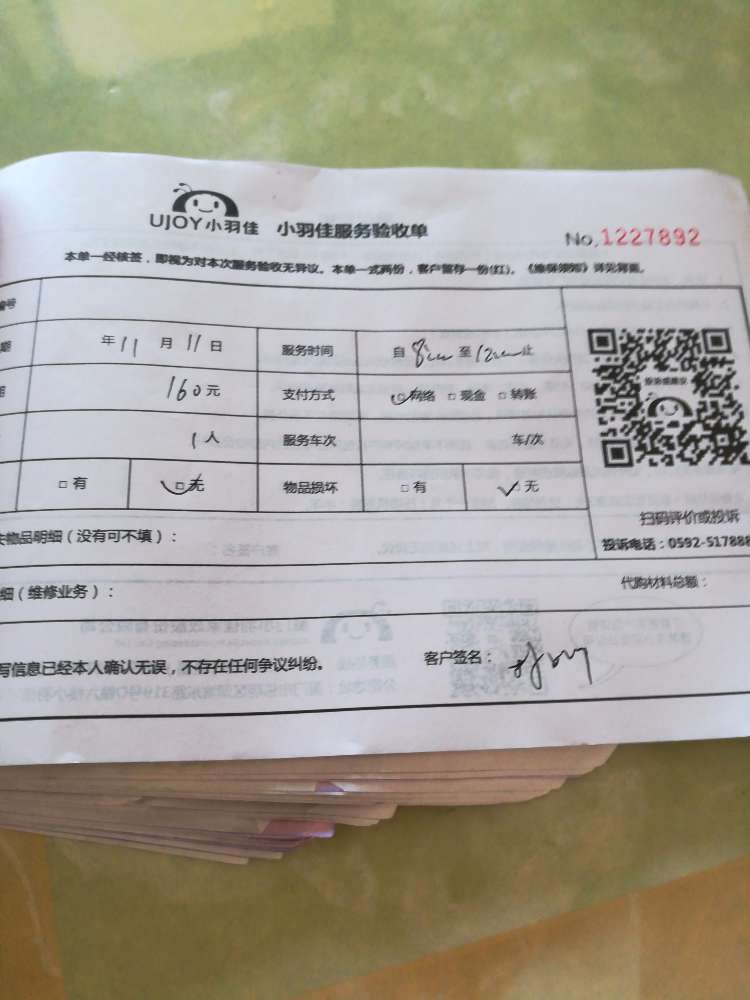 UJOY小羽佳 小羽佳服务验收单
No.1227892
本单一经核签，即视为对本次服务验收无异议。本单一式两份，客户留存一份(红)。《维保须知》详见背面。
年11月11日 服务时间 自8:00至12:00止
160元 支付方式 网络 □ 现金 □ 转账
投诉或建议
1人 服务车次 车/次
□ 有 □ 无 物品损坏 □ 有 □ 无
扫码评价或投诉
物品明细（没有可不填）：
投诉电话：0592-517888
细（维修业务）： 代购材料总额：
写信息已经本人确认无误，不存在任何争议纠纷。 客户签名：